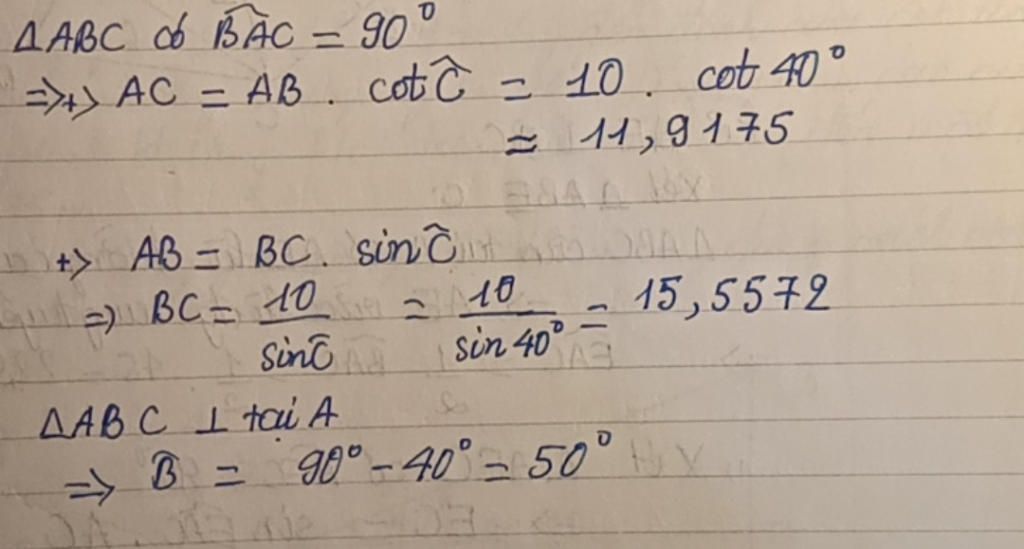 ΔABC có B̂AC = 90°
=>+> AC = AB . cotĈ = 10 . cot 40°
≈ 11,9175
+> AB = BC. sinĈ
=> BC = 10/sinĈ = 10/sin 40° = 15,5572
ΔABC ⊥ tại A
=> B̂ = 90° - 40° = 50°